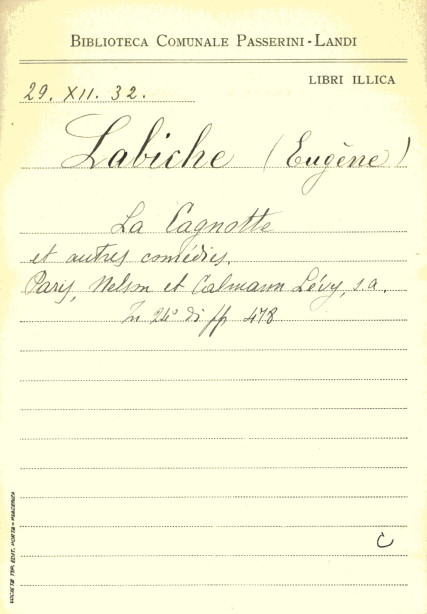 BIBLIOTECA COMUNALE PASSERINI-LANDI
LIBRI ILLICA
29. XII. 32.
Labiche (Eugène)
La Cagnotte
et autres comédies.
Paris, Nelson et Calmann Lévy, s.a.
In 24° di pp 478
C
SOCIETÀ TIP. EDIT. PORTA - PIACENZA